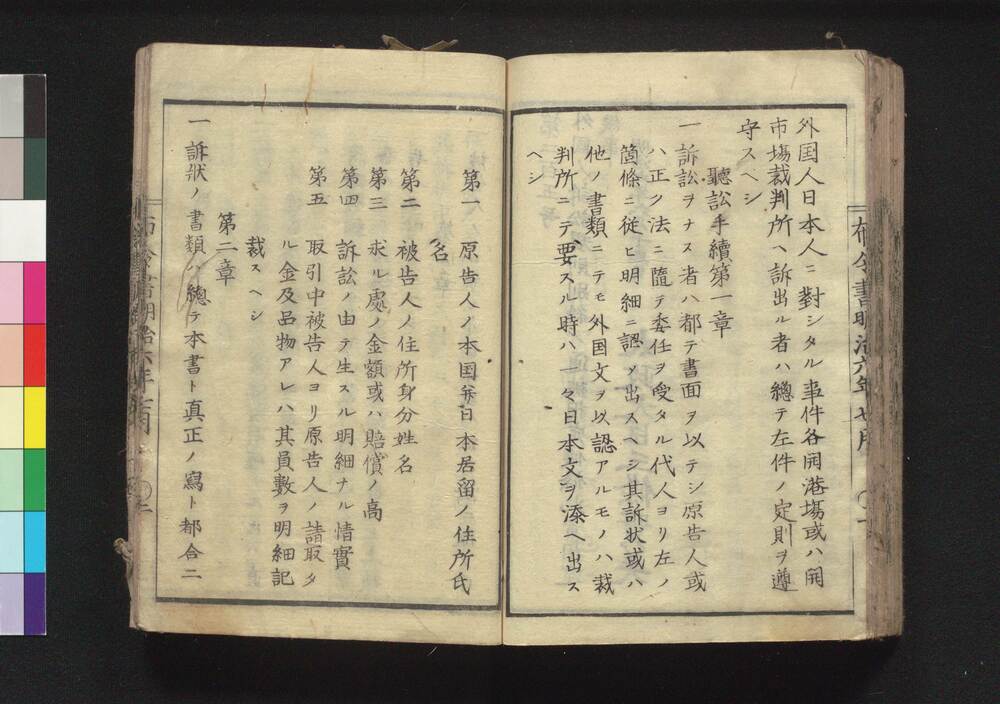 布令書明治六年七月
外国人日本人ニ對シタル事件各開港塲或ハ開
市塲裁判所ヘ訴出ル者ハ總テ左件ノ定則ヲ遵
守スヘシ
聽訟手續第一章
一訴訟ヲナス者ハ都テ書面ヲ以テシ原告人或
ハ正ク法ニ隨テ委任ヲ受タル代人ヨリ左ノ
箇條ニ従ヒ明細ニ認メ出スヘシ其訴状或ハ
他ノ書類ニテモ外国文ヲ以認アルモノハ裁
判所ニテ要スル時ハ一々日本文ヲ添ヘ出ス
ヘシ
第一 原告人ノ本国并日本居留ノ住所氏
名
第二 被告人ノ住所身分姓名
第三 求ル處ノ金額或ハ賠償ノ高
第四 訴訟ノ由テ生スル明細ナル情實
第五 取引中被告人ヨリ原告人ノ請取タ
ル金及品物アレハ其員數ヲ明細記
裁スヘシ
第二章
一 訴狀ノ書類ハ總テ本書ト真正ノ寫ト都合二
布令書明治六年七月